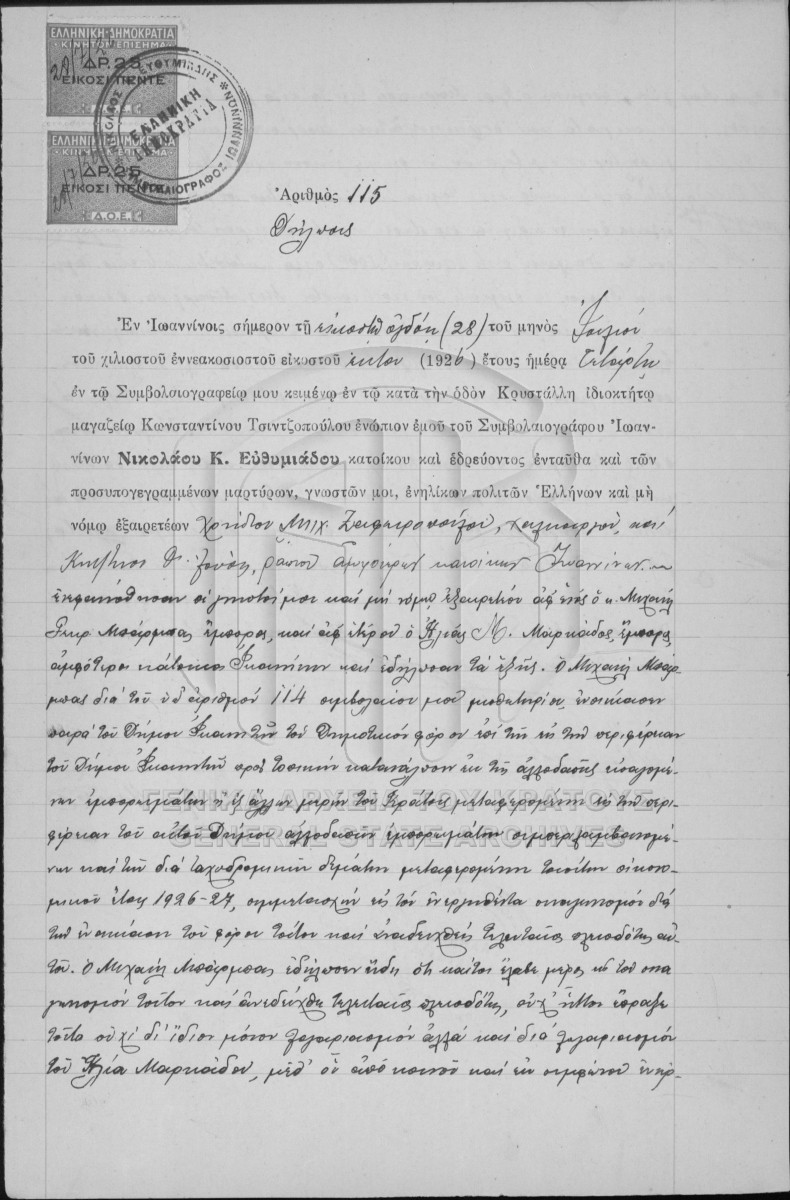 ΕΛΛΗΝΙΚΗ ΔΗΜΟΚΡΑΤΙΑ
ΚΙΝΗΤΟΝ ΕΠΙΣΗΜΑ
ΔΡ. 25
ΕΙΚΟΣΙ ΠΕΝΤΕ
ΕΛΛΗΝΙΚΗ ΔΗΜΟΚΡΑΤΙΑ
ΚΙΝΗΤΟΝ ΕΠΙΣΗΜΑ
ΔΡ. 25
ΕΙΚΟΣΙ ΠΕΝΤΕ
Δ.Ο.Ε.
ΕΛΛΗΝΙΚΗ ΔΗΜΟΚΡΑΤΙΑ
Ἀριθμὸς 115
Δήλωσις
Ἐν Ἰωαννίνοις σήμερον τῇ εἰκοστῇ ὀγδόῃ (28) τοῦ μηνὸς Ἰουλίου
τοῦ χιλιοστοῦ ἐννεακοσιοστοῦ εἰκοστοῦ ἕκτου (1926) ἔτους ἡμέρᾳ Τετάρτῃ
ἐν τῷ Συμβολαιογραφείῳ μου κειμένῳ ἐν τῷ κατὰ τὴν ὁδὸν Κρυστάλλη ἰδιοκτήτῳ
μαγαζείῳ Κωνσταντίνου Τσιντζοπούλου ἐνώπιον ἐμοῦ τοῦ Συμβολαιογράφου Ἰωαν-
νίνων Νικολάου Κ. Εὐθυμιάδου κατοίκου καὶ ἑδρεύοντος ἐνταῦθα καὶ τῶν
προσυπογεγραμμένων μαρτύρων, γνωστῶν μοι, ἐνηλίκων πολιτῶν Ἑλλήνων καὶ μὴ
νόμῳ ἐξαιρετέων Χρήστου Μιχ. Ζαφειροπούλου, χαλκουργοῦ, καὶ
ράπτου ἀμφοτέρων κατοίκων Ἰωαννίνων
ἐνεφανίσθησαν οἱ γνωστοί μοι καὶ μὴ νόμῳ ἐξαιρετέοι ἀφ' ἑνὸς ὁ κ. Μιχαὴλ
Γεωρ. Μπάρμπας ἔμπορος, καὶ ἀφ' ἑτέρου ὁ Ἠλίας Μ. Μαρκάδος, ἔμπορος,
ἀμφότεροι κάτοικοι Ἰωαννίνων καὶ ἐδήλωσαν τὰ ἑξῆς. Ὁ Μιχαὴλ Μπάρ-
μπας διὰ τοῦ ὑπ' ἀριθμὸν 114 συμβολαίου μου μισθωτηρίου, ἐνοικίασεν
παρὰ τοῦ Δήμου Ἰωαννιτῶν τὸν Δημοτικὸν φόρον ἐπὶ τῆς εἰς τὴν περιφέρειαν
τοῦ Δήμου Ἰωαννιτῶν πρὸς τοπικὴν κατανάλωσιν ἐκ τῆς ἀλλοδαπῆς εἰσαγομέ-
νων ἐμπορευμάτων ἢ ἐξ ἄλλων μερῶν τοῦ Κράτους μεταφερομένων εἰς τὴν περι-
φέρειαν τοῦ αὐτοῦ Δήμου ἀλλοδαπῶν ἐμπορευμάτων συμπεριλαμβανομέ-
νων καὶ τῶν διὰ ταχυδρομικῶν δεμάτων μεταφερομένων τοιούτων οἰκονο-
μικοῦ ἔτους 1926-27, συμμετασχὼν εἰς τὸν ἐνεργηθέντα διαγωνισμὸν διὰ
τὴν ἐνοικίασιν τοῦ φόρου τούτου καὶ ἀναδειχθεὶς τελευταῖος πλειοδότης αὐ-
τοῦ. Ὁ Μιχαὴλ Μπάρμπας ἐδήλωσεν ἤδη ὅτι καίτοι ἔλαβε μέρος εἰς τὸν δια-
γωνισμὸν τοῦτον καὶ ἀνεδείχθη τελευταῖος πλειοδότης, οὐχ' ἧττον ἔπραξε
τοῦτο οὐχὶ δι' ἴδιον μόνον λογαριασμὸν ἀλλὰ καὶ διὰ λογαριασμὸν
τοῦ Ἠλία Μαρκάδου, μεθ' οὗ ἀπὸ κοινοῦ καὶ ἐκ συμφώνου ἐνήρ-
ΓΕΝΙΚΑ ΑΡΧΕΙΑ ΤΟΥ ΚΡΑΤΟΥΣ
GENERAL STATE ARCHIVES